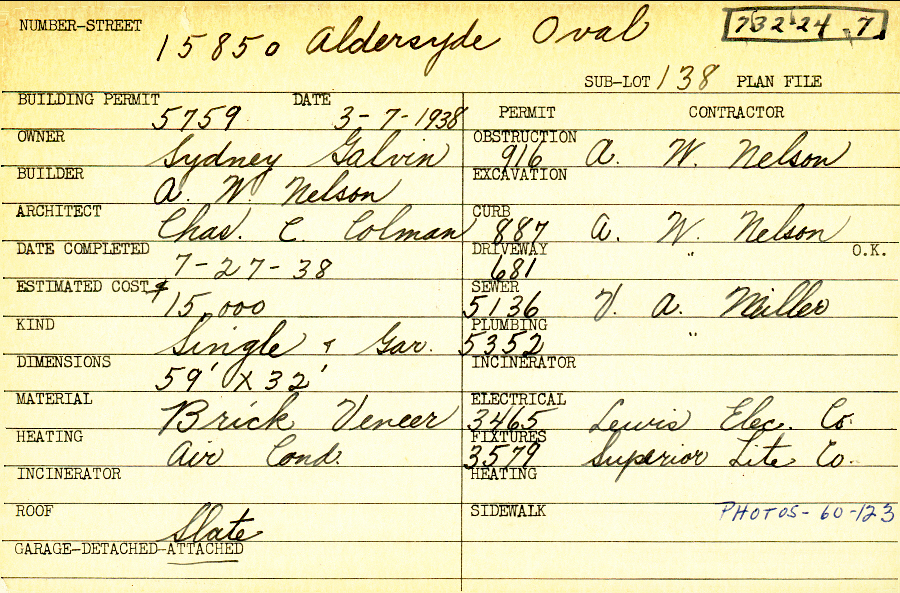 NUMBER-STREET 15850 Aldersyde Oval 732-24-7
SUB-LOT 138 PLAN FILE
BUILDING PERMIT 5759 DATE 3-7-1938
OWNER Sydney Galvin
BUILDER A. W. Nelson
ARCHITECT Chas. C. Colman
DATE COMPLETED 7-27-38
ESTIMATED COST $ 15,000
KIND Single & Gar.
DIMENSIONS 59' X 32'
MATERIAL Brick Veneer
HEATING Air Cond.
INCINERATOR
ROOF Slate
GARAGE-DETACHED-ATTACHED
PERMIT CONTRACTOR
OBSTRUCTION 916 A. W. Nelson
EXCAVATION
CURB 887 A. W. Nelson
DRIVEWAY 681 " O.K.
SEWER 5136 V. A. Miller
PLUMBING 5352 "
INCINERATOR
ELECTRICAL 3465 Lewis Elec. Co.
FIXTURES 3579 Superior Lite Co.
HEATING
SIDEWALK PHOTOS-60-123